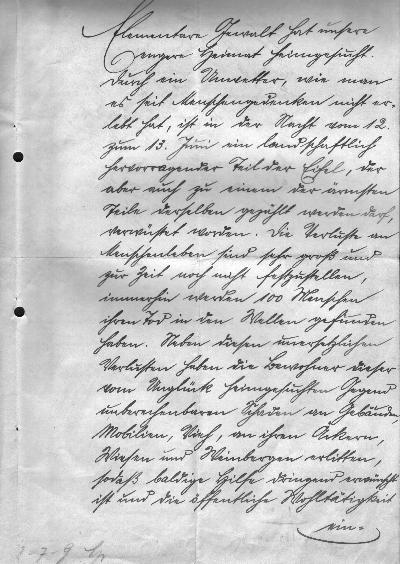 Elementare Gewalt hat unsere
engere Heimat heimgesucht.
Durch ein Unwetter, wie man
es seit Menschengedenken nicht er-
lebt hat, ist in der Nacht vom 12.
zum 13. Juni ein landschaftlich
hervorragender Teil der Eifel, der
aber auch zu einem der ärmsten
Teile derselben gezählt werden darf,
verwüstet worden. Die Verluste an
Menschenleben sind sehr groß und
zur Zeit noch nicht festzustellen,
immerhin werden 100 Menschen
ihren Tod in den Wellen gefunden
haben. Neben diesen unersetzlichen
Verlusten haben die Bewohner dieser
vom Unglück heimgesuchten Gegend
unberechenbaren Schaden an Gebäuden,
Mobilien, Vieh, an ihren Äckern,
Wiesen und Weinbergen erlitten,
sodaß baldige Hilfe dringend erwünscht
ist und die öffentliche Wohltätigkeit
ein-